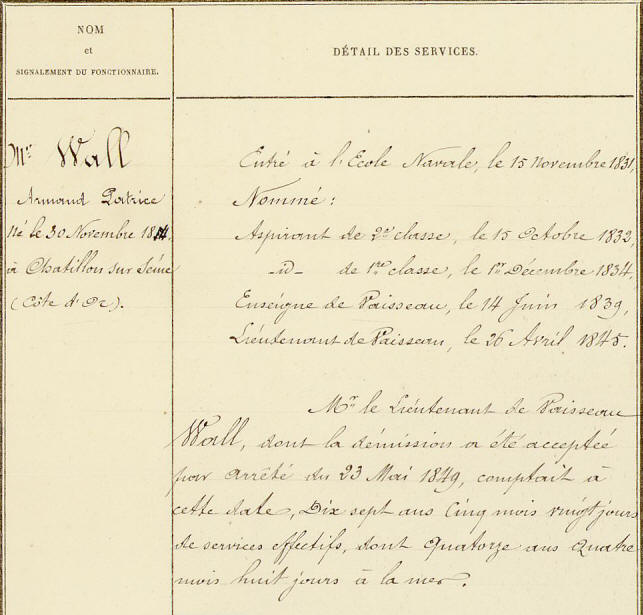 NOM
et
SIGNALEMENT DU FONCTIONNAIRE.
DÉTAIL DES SERVICES.
Mr. Wall
Armand Patrice
né le 30 Novembre 1814.
à Chatillon sur Seine
(Côte d'Or).
Entré à l'Ecole Navale, le 15 novembre 1831,
Nommé:
Aspirant de 2e classe, le 15 Octobre 1832,
-d- de 1re classe, le 1er Décembre 1834,
Enseigne de Vaisseau, le 14 Juin 1839,
Lieutenant de Vaisseau, le 26 Avril 1845.
Mr le Lieutenant de Vaisseau
Wall, dont la démission a été acceptée
par arrêté du 23 Mai 1849, comptait à
cette date, Dix sept ans Cinq mois vingt jours
de services effectifs, dont Quatorze ans Quatre
mois huit jours à la mer.